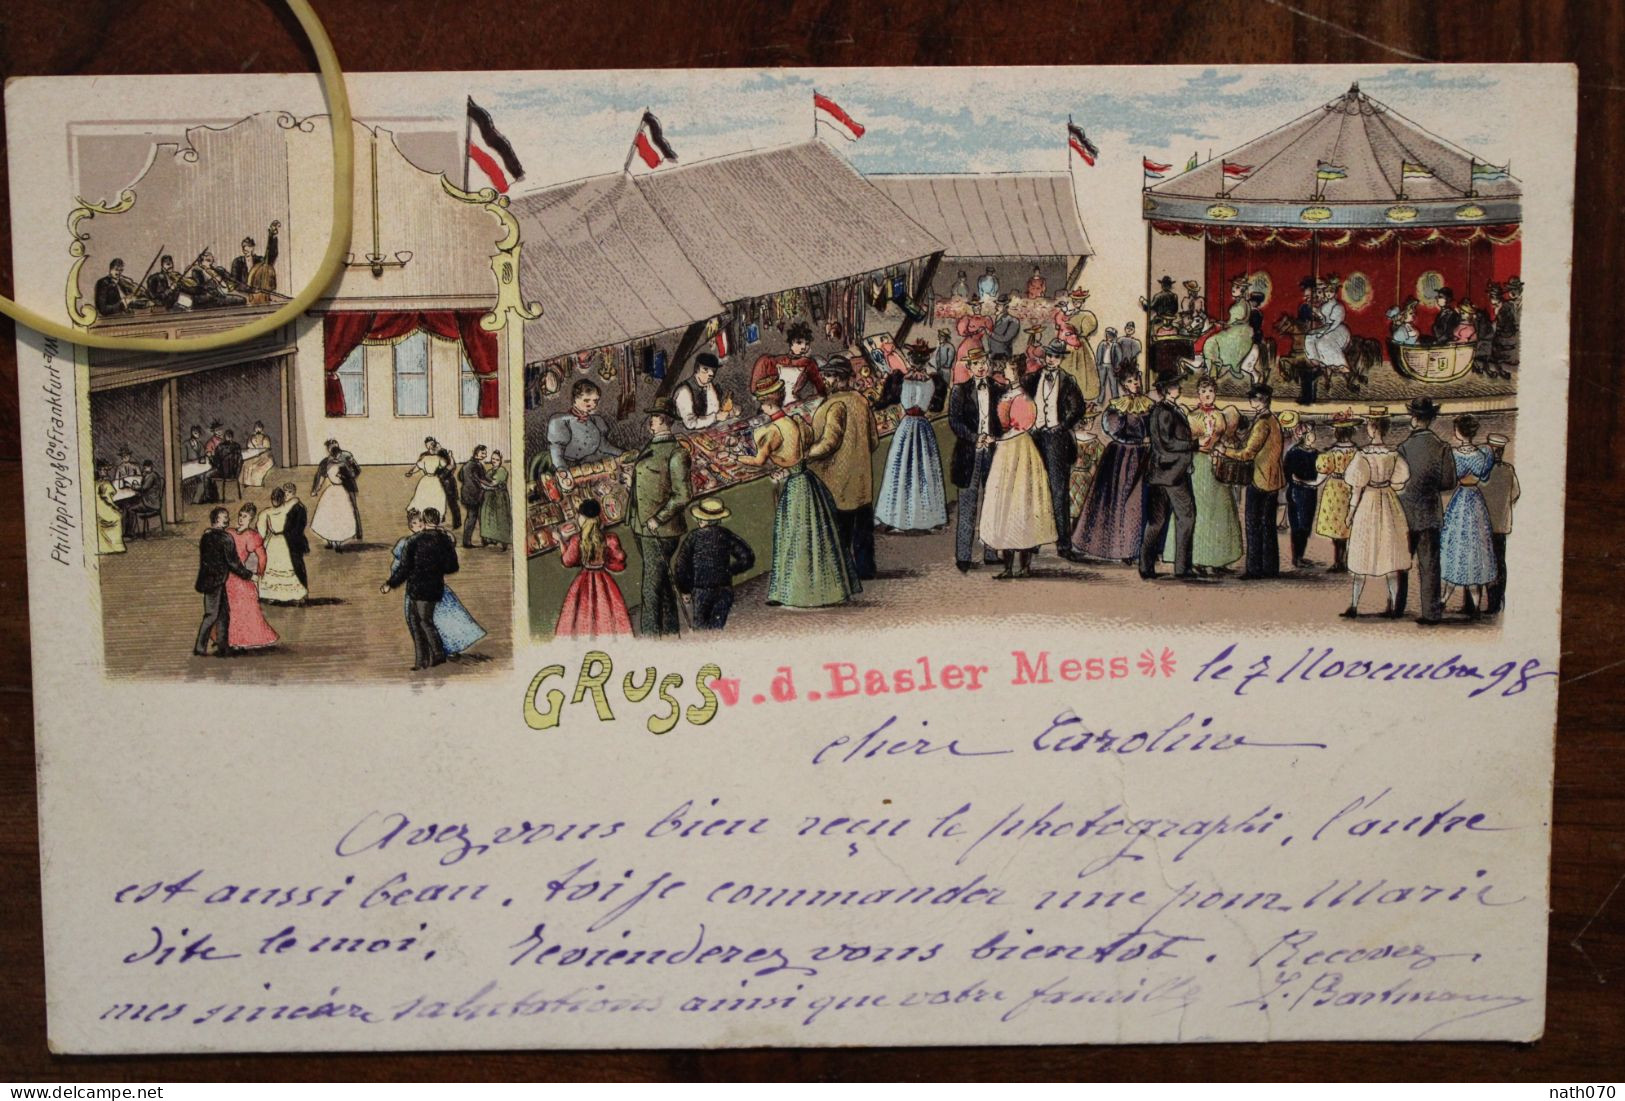 Philipp Frey & Co., Frankfurt a. M.
GRUSS v.d. Basler Mess
le 7 Novembre 98
chère Caroline
Avez vous bien reçu la photographi, l'autre
est aussi beau. toi je commander une pour Marie
dite le moi. Reviendrez vous bientot. Recevez
mes sincère salutations ainsi que votre famille L. Bartmann
nath070